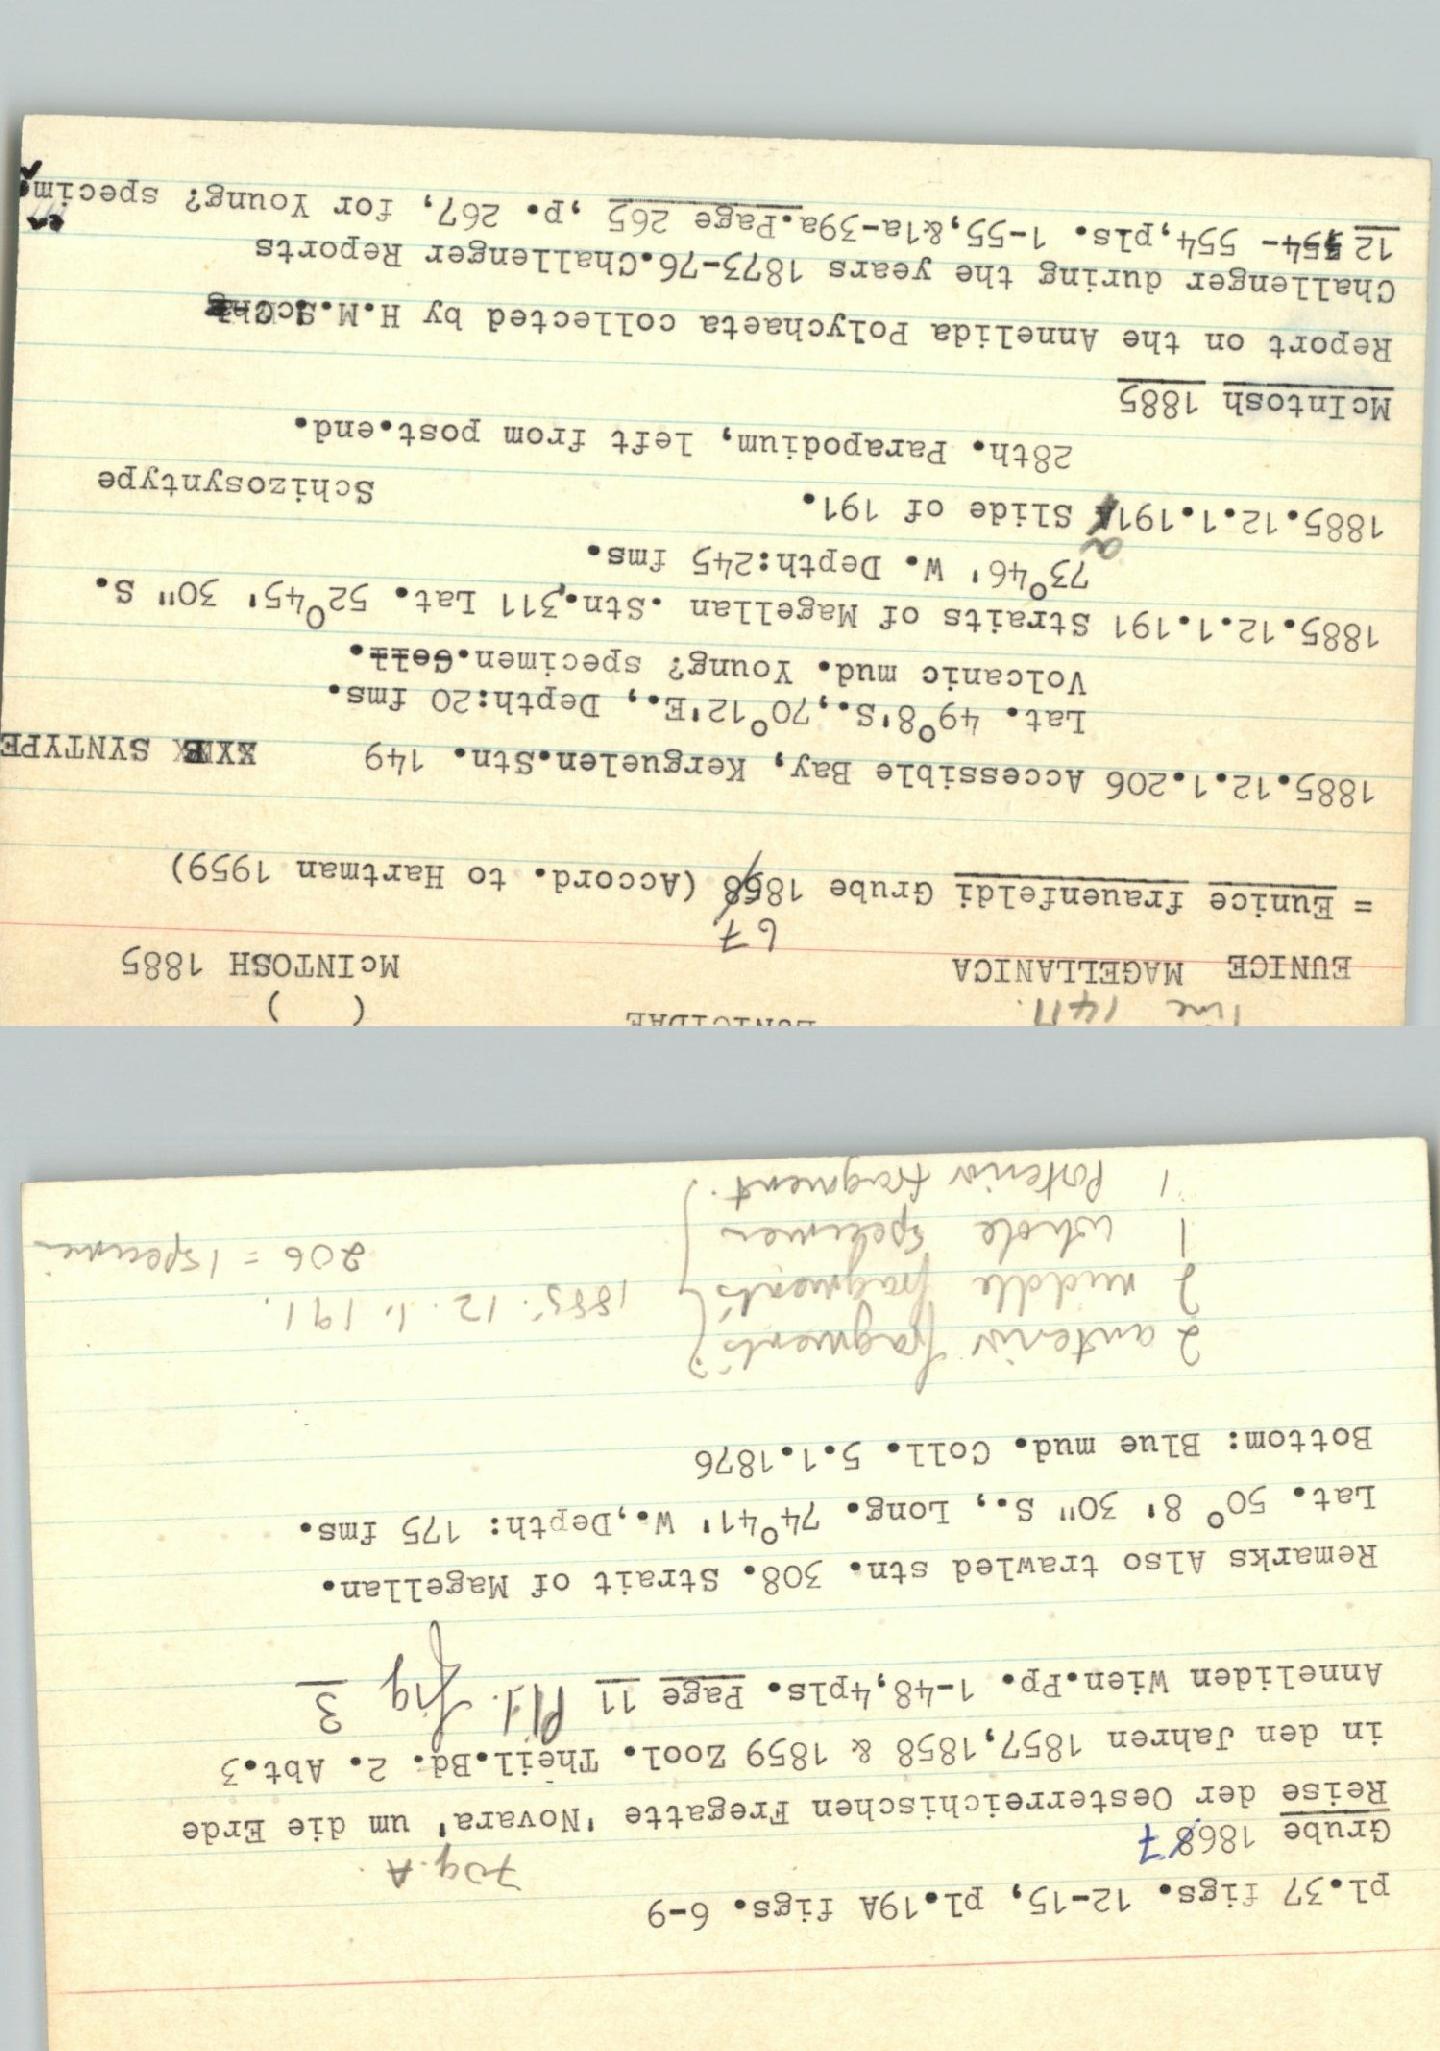 EUNICIDAE
Line 1411.
( )
EUNICE MAGELLANICA McINTOSH 1885
67
= Eunice frauenfeldi Grube 1858 (Accord. to Hartman 1959)
1885.12.1.206 Accessible Bay, Kerguelen.Stn. 149 SYNTYPE
Lat. 49°8'S.,70°12'E., Depth:20 fms.
Volcanic mud. Young? specimen.Coll.
1885.12.1.191 Straits of Magellan .Stn.311 Lat. 52°45' 30" S.
73°46' W. Depth:245 fms.
a
1885.12.1.191A Slide of 191. Schizosyntype
28th. Parapodium, left from post.end.
McIntosh 1885
Report on the Annelida Polychaeta collected by H.M.S.
Challenger during the years 1873-76.Challenger Reports
12 - 554,pls. 1-55,&1a-39a.Page 265 ,p. 267, for Young? specimen
pl.37 figs. 12-15, pl.19A figs. 6-9
Grube 1868 7
Reise der Oesterreichischen Fregatte 'Novara' um die Erde
in den Jahren 1857,1858 & 1859 Zool. Theil.Bd. 2. Abt.3
Anneliden Wien.Pp. 1-48,4pls. Page 11 Pl1. fig 3
Remarks Also trawled stn. 308. Strait of Magellan.
Lat. 50° 8' 30" S., Long. 74°41' W.,Depth: 175 fms.
Bottom: Blue mud. Coll. 5.1.1876
2 anterior fragments
2 middle fragments 1885.12.1.191.
1 whole specimen 206 = 1 specimen
1 Posterior fragment.